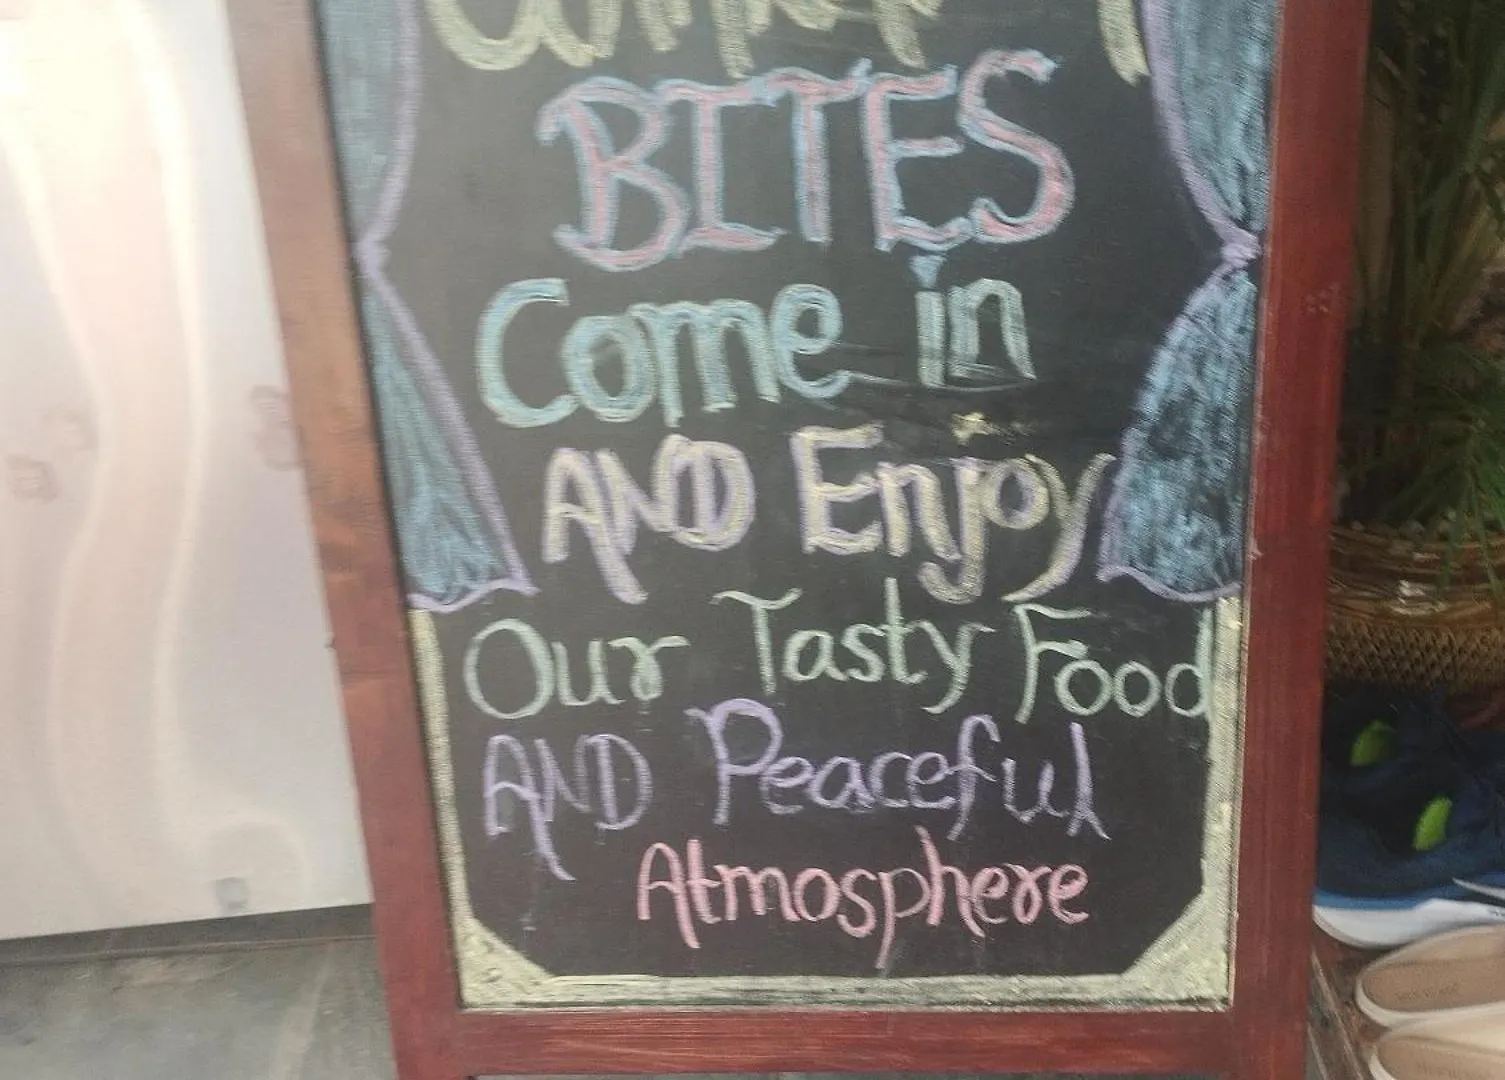 BITES
Come in
AND Enjoy
Our Tasty Food
AND Peaceful
Atmosphere